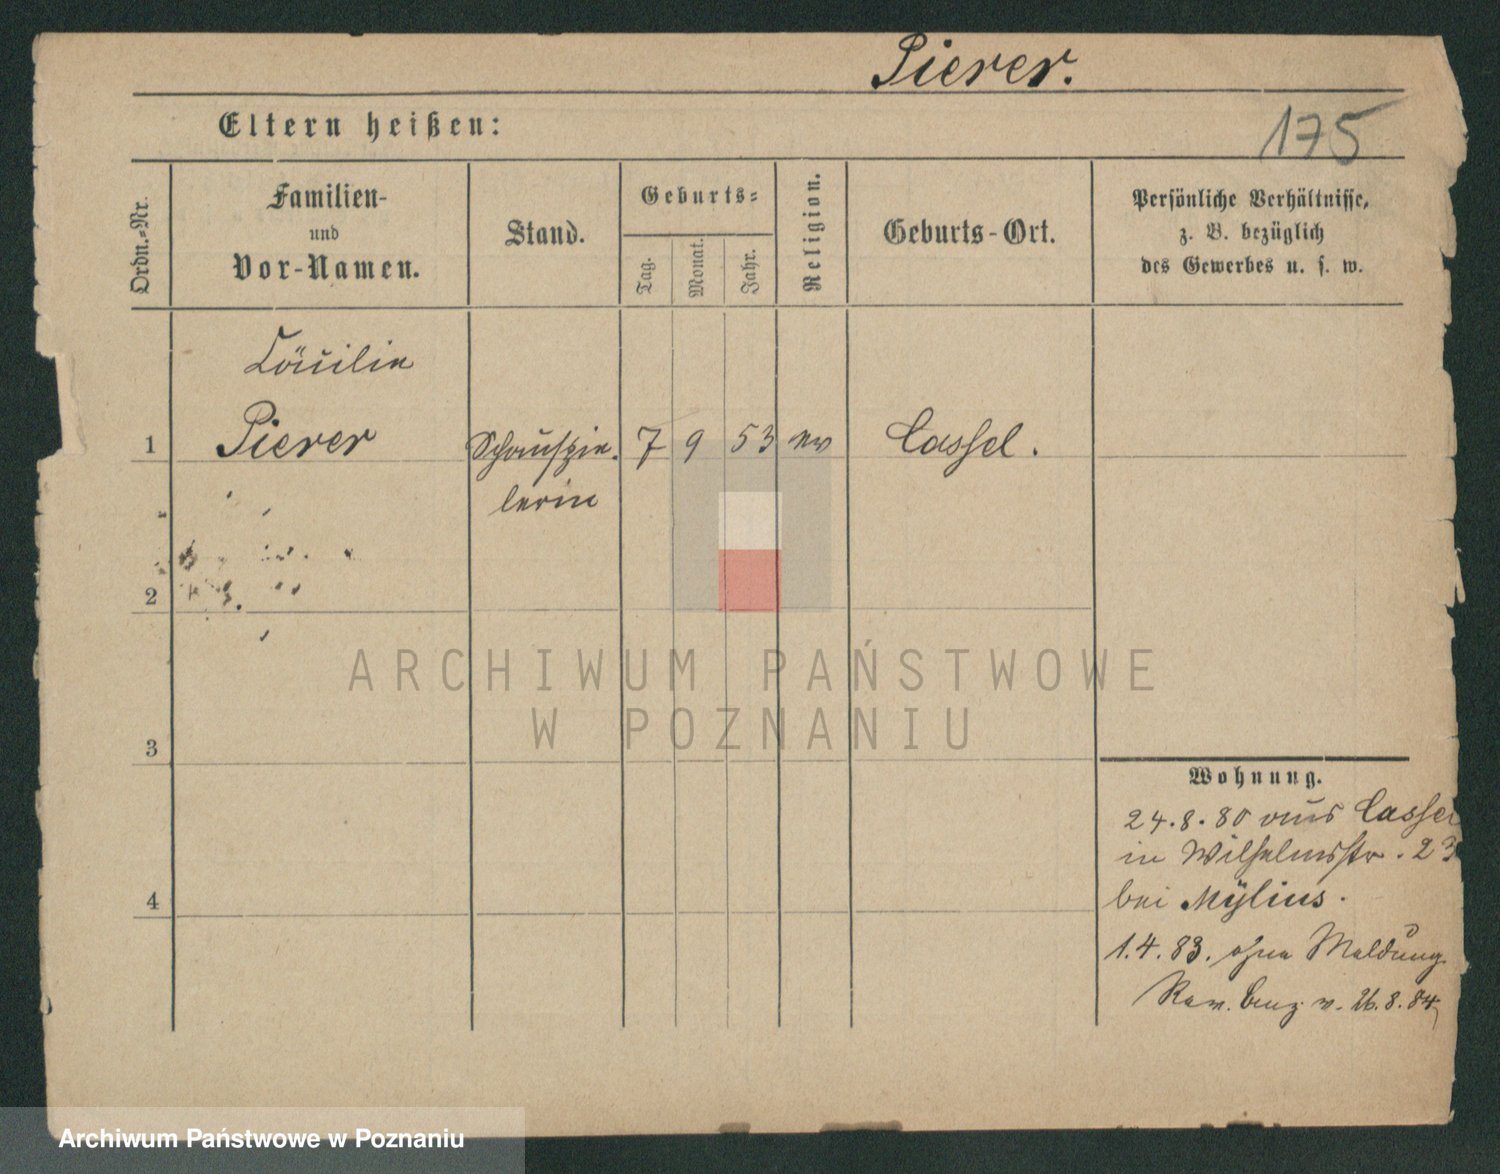 Pierer.
175
Eltern heißen:
Ordn.=Nr.
Familien-
und
Vor-Namen.
Stand.
Geburts=
Tag.
Monat.
Jahr.
Religion.
Geburts-Ort.
Persönliche Verhältnisse,
z. B. bezüglich
des Gewerbes u. s. w.
Cäcilie
1 Pierer Schauspie- 7 9 53 ev Cassel.
lerin
2
ARCHIWUM PAŃSTWOWE
W POZNANIU
3
Wohnung.
24.8.80 aus Cassel
in Wilhelmsstr. 23
bei Mylius.
4
1.4.83. ohne Meldung
Rev. v. 26.8.84
Archiwum Państwowe w Poznaniu